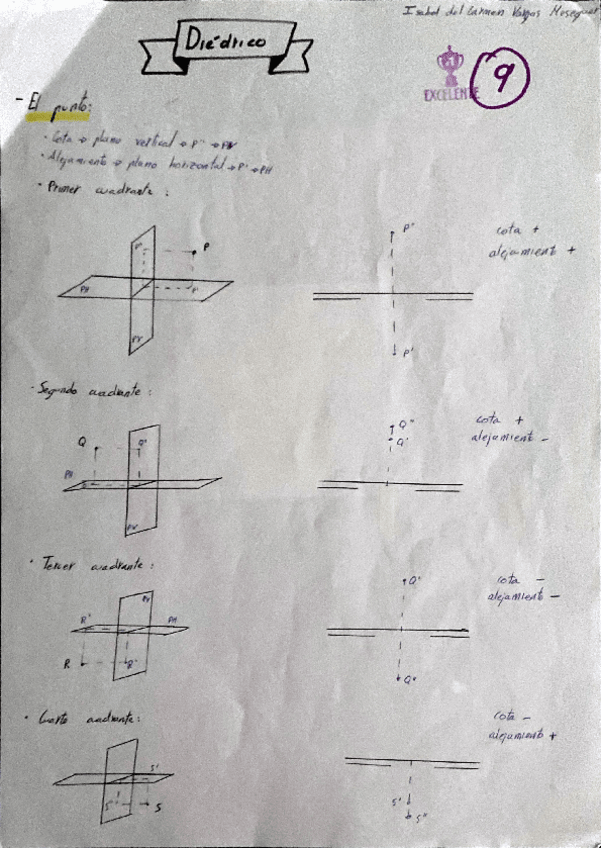 Isabel del Carmen Vargas Moseguer
Diédrico
EXCELENTE
9
- El punto:
· Cota → plano vertical → P'' → PV
· Alejamiento → plano horizontal → P' → PH
· Primer cuadrante:
P''
P
PH
P'
PV
P''
P'
cota +
alejamiento +
· Segundo cuadrante:
Q
Q''
PH
PV
Q''
Q'
cota +
alejamiento -
· Tercer cuadrante:
PV
R'
PH
R
R''
Q'
Q''
cota -
alejamiento -
· Cuarto cuadrante:
S'
S''
S
S'
S''
cota -
alejamiento +